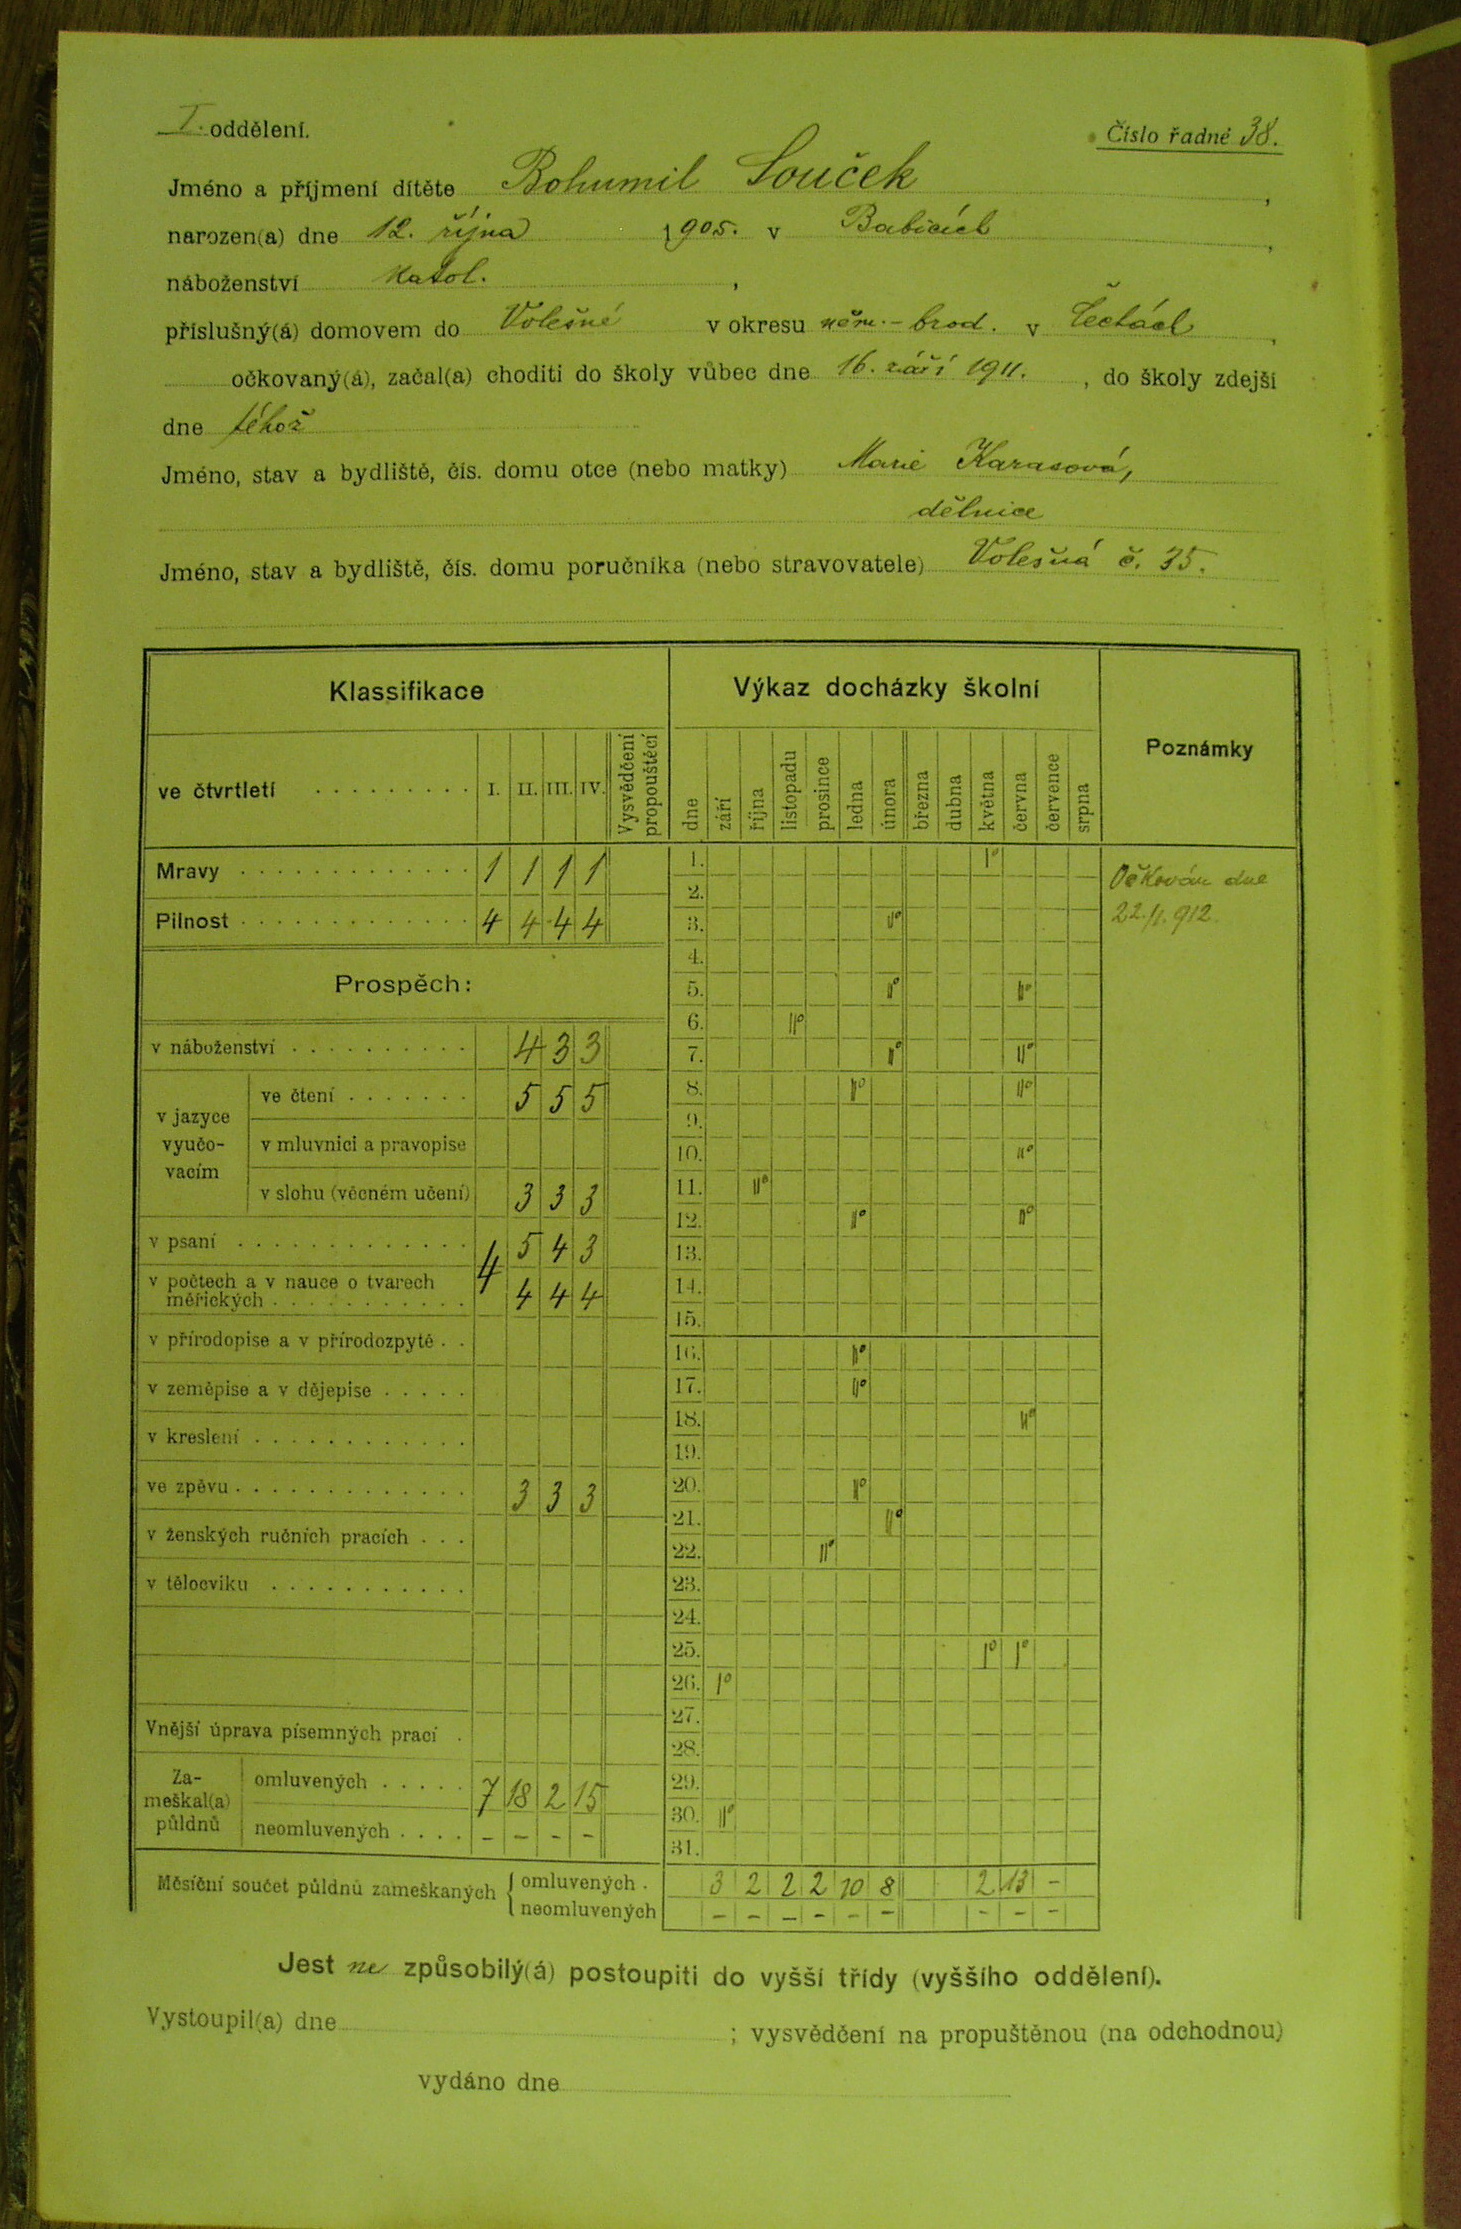 I. oddělení.
Číslo řadné 38.
Jméno a příjmení dítěte Bohumil Souček,
narozen(a) dne 12. října 1905. v Babicích,
náboženství katol.,
příslušný(á) domovem do Volešné v okresu něm.-brod. v Čechách,
očkovaný(á), začal(a) choditi do školy vůbec dne 16. září 1911., do školy zdejší
dne téhož
Jméno, stav a bydliště, čís. domu otce (nebo matky) Marie Karasová,
dělnice
Jméno, stav a bydliště, čís. domu poručníka (nebo stravovatele) Volešná č. 35.
Klassifikace Výkaz docházky školní Poznámky
ve čtvrtletí I. II. III. IV. Vysvědčení propouštěcí dne září října listopadu prosince ledna února března dubna května června července srpna
Mravy 1 1 1 1
Pilnost 4 4 4 4
Očkován dne
22./1. 912.
Prospěch:
v náboženství 4 3 3
v jazyce vyučovacím
ve čtení 5 5 5
v mluvnici a pravopise
v slohu (věcném učení) 3 3 3
v psaní 4 5 4 3
v počtech a v nauce o tvarech
měřických 4 4 4
v přírodopise a v přírodozpytě
v zeměpise a v dějepise
v kreslení
ve zpěvu 3 3 3
v ženských ručních pracích
v tělocviku
Vnější úprava písemných prací
Zameškal(a) půldnů
omluvených 7 18 2 15
neomluvených - - - -
1. I°
2.
3. II°
4.
5. II° II°
6. II°
7. II° II°
8. II° II°
9.
10. II°
11. II°
12. II° II°
13.
14.
15.
16. II°
17. II°
18. II°
19.
20. II°
21. II°
22. II°
23.
24.
25. I° I°
26. I°
27.
28.
29.
30. II°
31.
Měsíční součet půldnů zameškaných
omluvených. 3 2 2 2 10 8 2 13 -
neomluvených - - - - - - - - -
Jest ne způsobilý(á) postoupiti do vyšší třídy (vyššího oddělení).
Vystoupil(a) dne ; vysvědčení na propuštěnou (na odchodnou)
vydáno dne